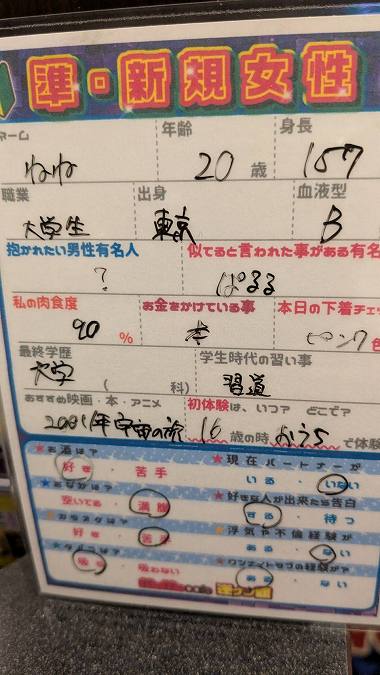 準・新規女性
ネーム 年齢 身長
ねね 20歳 157
職業 出身 血液型
大学生 東京 B
抱かれたい男性有名人 似てると言われた事がある有名
? ぱるる
私の肉食度 お金をかけている事 本日の下着チェッ
90% 本 ピンク色
最終学歴 学生時代の習い事
大学 ( 科) 習道
おすすめ映画・本・アニメ 初体験は、いつ? どこで?
2001年宇宙の旅 16歳の時おうちで体験
お酒は? 現在パートナーが
好き・苦手 いる・いない
おなかは? 好きな人が出来たら告白
空いてる・満腹 する・待つ
カラオケは? 浮気や不倫経験が
好き・苦手 ある・ない
タバコは? ワンナイトラブの経験が?
吸う・吸わない ある・ない